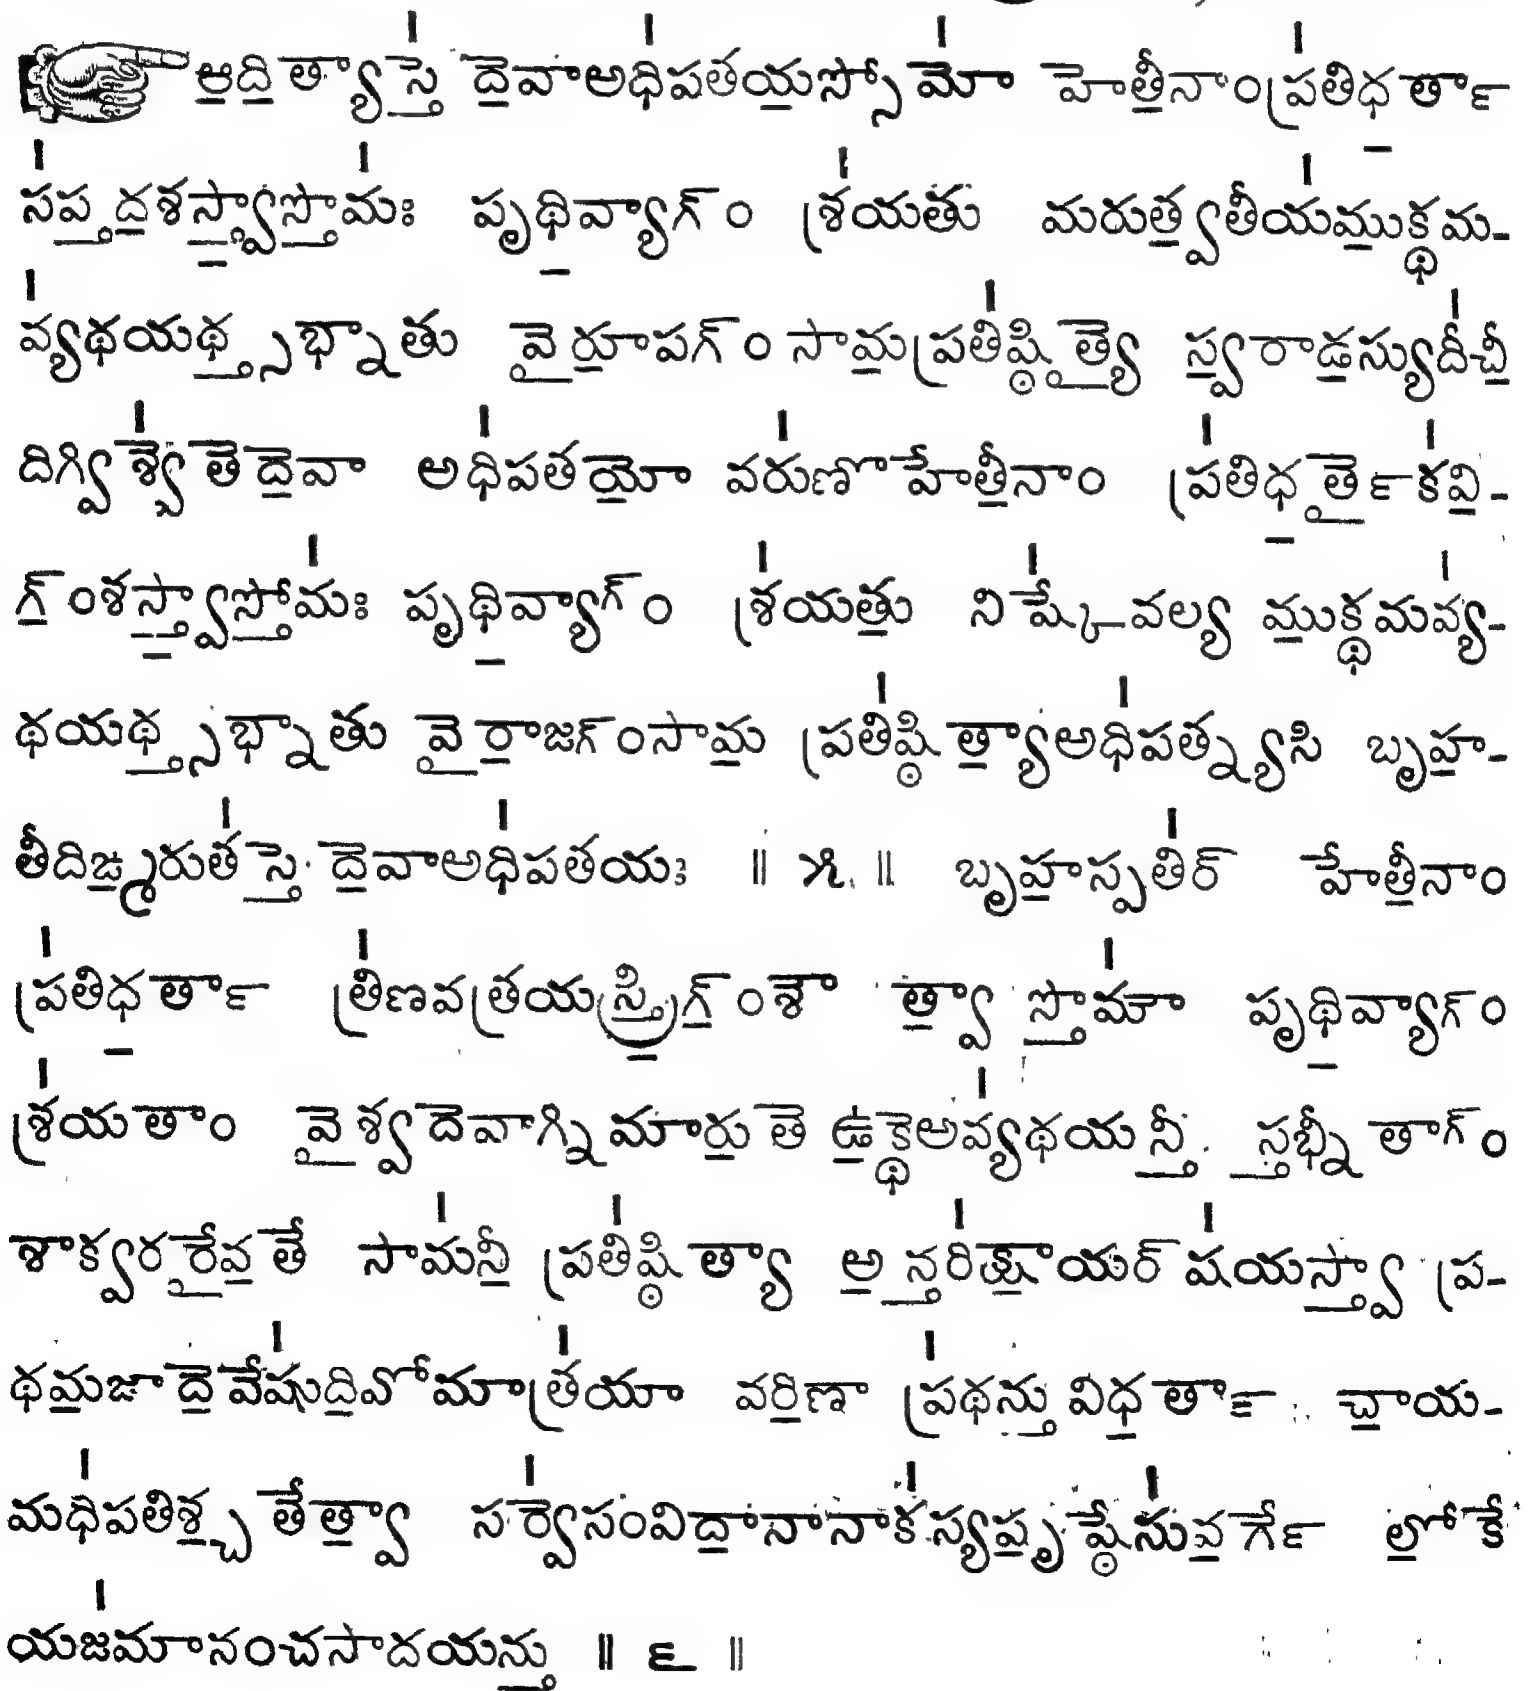 ☞ ఆ॒ది॒త్యాస్తే॑ దే॒వాఅధి॑పతయ॒స్సోమో॑ హేతీ॒నాంప్ర॑తిధ॒ర్తా
స॑ప్త॒ద॒శస్త్వా॒స్తోమః॑ పృథి॒వ్యాగ్ం శ్ర॑యతు మరుత్వ॒తీయ॑ము॒క్థమ-
వ్య॑థయథ్స్త॒భ్నాతు వై॒రూ॒పగ్ం సామ॒ప్రతి॑ష్ఠి॒త్యై స్వ॒రాడ॒స్యుదీ॑చీ॒
దిగ్విశ్వే॑ తే దే॒వా అధి॑పతయో॒ వరు॑ణోహేతీ॒నాం ప్ర॑తిధ॒ర్తైక॑వి॒-
గ్॒ంశస్త్వా॒స్తోమః॑ పృథి॒వ్యాగ్ం శ్ర॑యతు॒ నిష్కే॑వల్య ము॒క్థమవ్య॑-
థయథ్స్త॒భ్నాతు వై॒రా॒జగ్ంసామ॒ ప్రతి॑ష్ఠి త్యా॒అధి॑పత్న్యసి బృహ॒-
తీదిఙ్మ॒రుత॑స్తే॒ దే॒వాఅధి॑పతయః ॥ ౫ ॥ బృహ॒స్పతి॑ర్ హేతీ॒నాం
ప్ర॑తిధ॒ర్తా త్రి॑ణవత్రయస్త్రి॒గ్॒ంశౌ త్వా॒ స్తోమౌ॑ పృథి॒వ్యాగ్ం
శ్ర॑యతాం వై॒శ్వదేవాగ్నిమారు॒తే ఉ॒క్థేఅవ్య॑థయన్తీ॒ స్త॒భ్నీతాగ్ం
శాక్వరరై॒వ॒తే సామ॑నీ॒ ప్రతి॑ష్ఠిత్యా అ॒న్తరి॑క్షా॒యర్ష॑యస్త్వా॒ ప్ర-
థమ॒జాదే॒వేషు॑ది॒వోమాత్ర॑యా వరి॒ణా ప్ర॑థన్తు॒విధ॒ర్తా॒ చా॒య-
మధి॑పతిశ్చ॒ తేత్వా॒ సర్వే॑సంవిదా॒నానాక॑స్యపృ॒ష్ఠేసు॑వ॒ర్గే లో॒కే
యజ॑మానంచసాదయన్తు॒ ॥ ౬ ॥